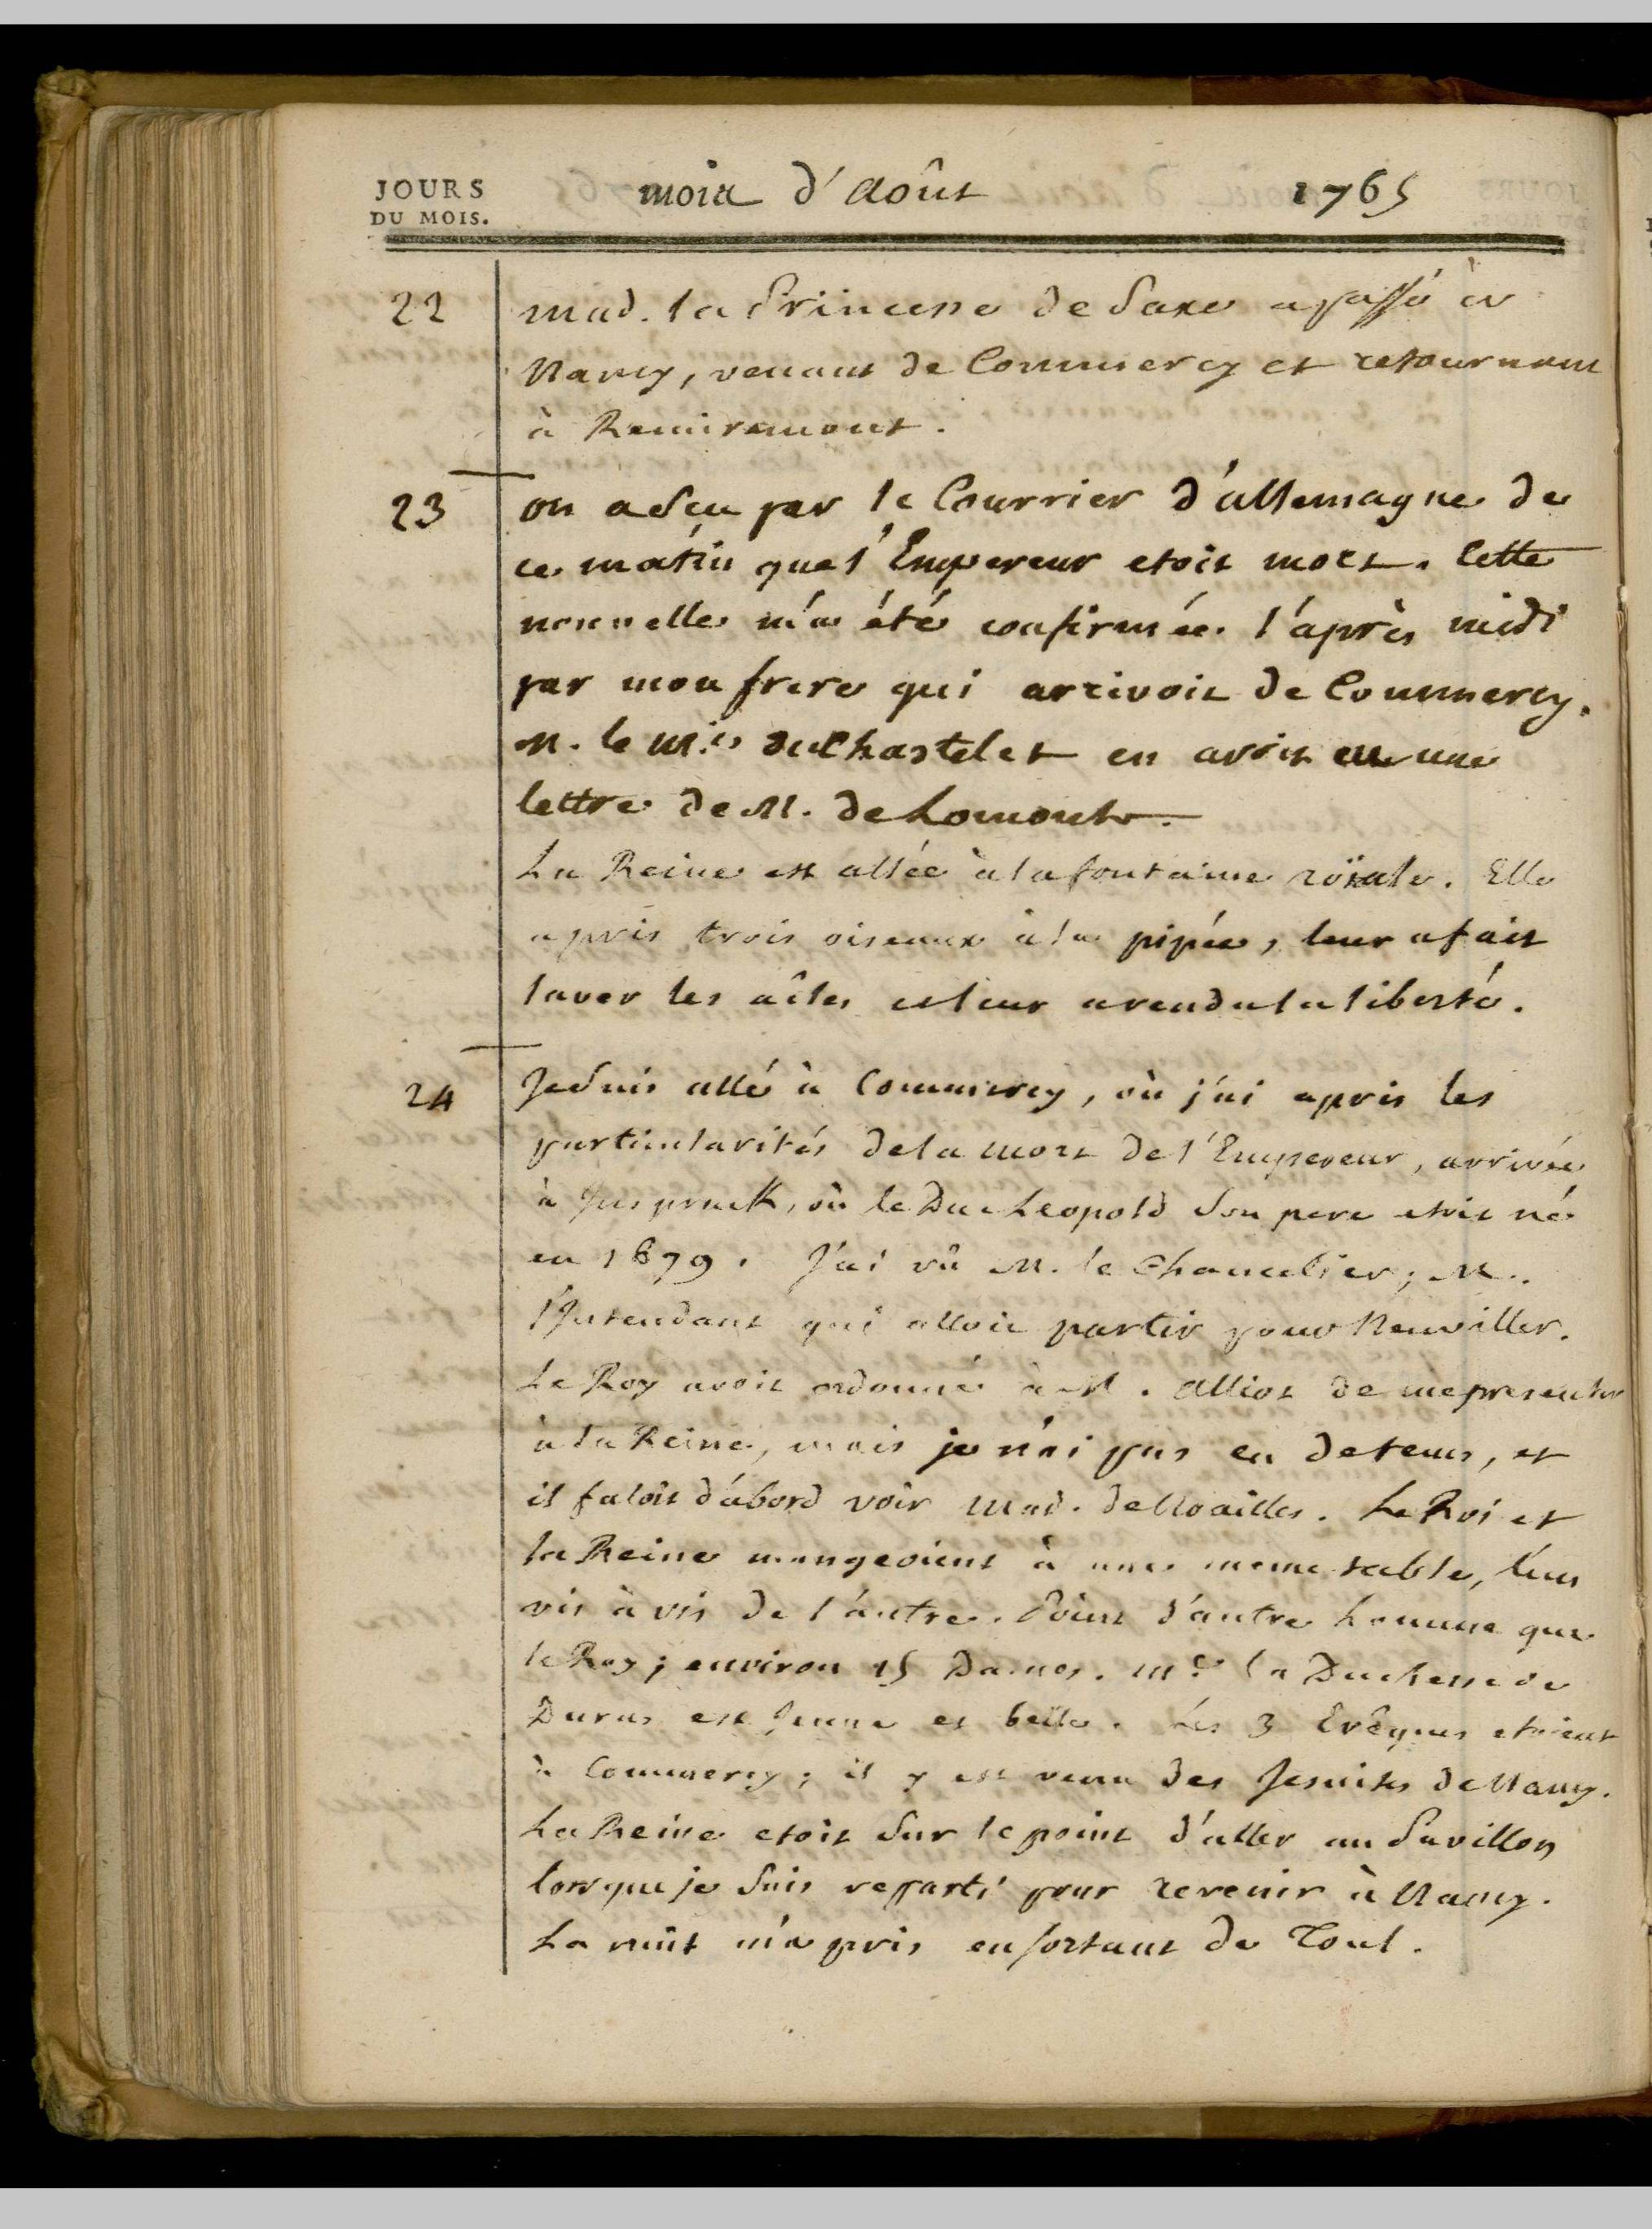 JOURS
DU MOIS.
mois d'Août 1765
22 Mad. la Princesse de Saxe a passé à
Nancy, venant de Commercy et retournant
à Remiremont.
23 on a sçu par le Courrier d'allemagne de
ce matin que l'Empereur etoit mort. Cette
nouvelle m'a été confirmée l'après midi
par mon frere qui arrivoit de Commercy.
M. le M.is du Chastelet en avoit eu une
lettre de M. de Lomont.
La Reine est allée à la fontaine roïale. Elle
a pris trois oiseaux à la pipée, leur a fait
laver les aîles et leur a rendu la liberté.
24 Je suis allé à Commercy, où j'ai apris les
particularités de la mort de l'Empereur, arrivée
à Inspruck, où le Duc Leopold son pere etoit né
en 1679. J'ai vû M. le Chancelier; M.
l'Intendant qui alloit partir pour Neuviller.
Le Roy avoit ordonné à M. Alliot de me presenter
à la Reine, mais je n'ai pas eu de tems, et
il faloit d'abord voir Mad. de Noailles. Le Roi et
la Reine mangeoient à une meme table, l'un
vis à vis de l'autre. Point d'autre homme que
le Roy; environ 15 Dames. Me la Duchesse de
Duras est jeune et belle. Les 3 Evêques etoient
à Commercy; il y est venu des Jesuites de Nancy.
La Reine etoit sur le point d'aller au Pavillon
lorsque je suis reparti pour revenir à Nancy.
La nuit m'a pris en sortant de Toul.